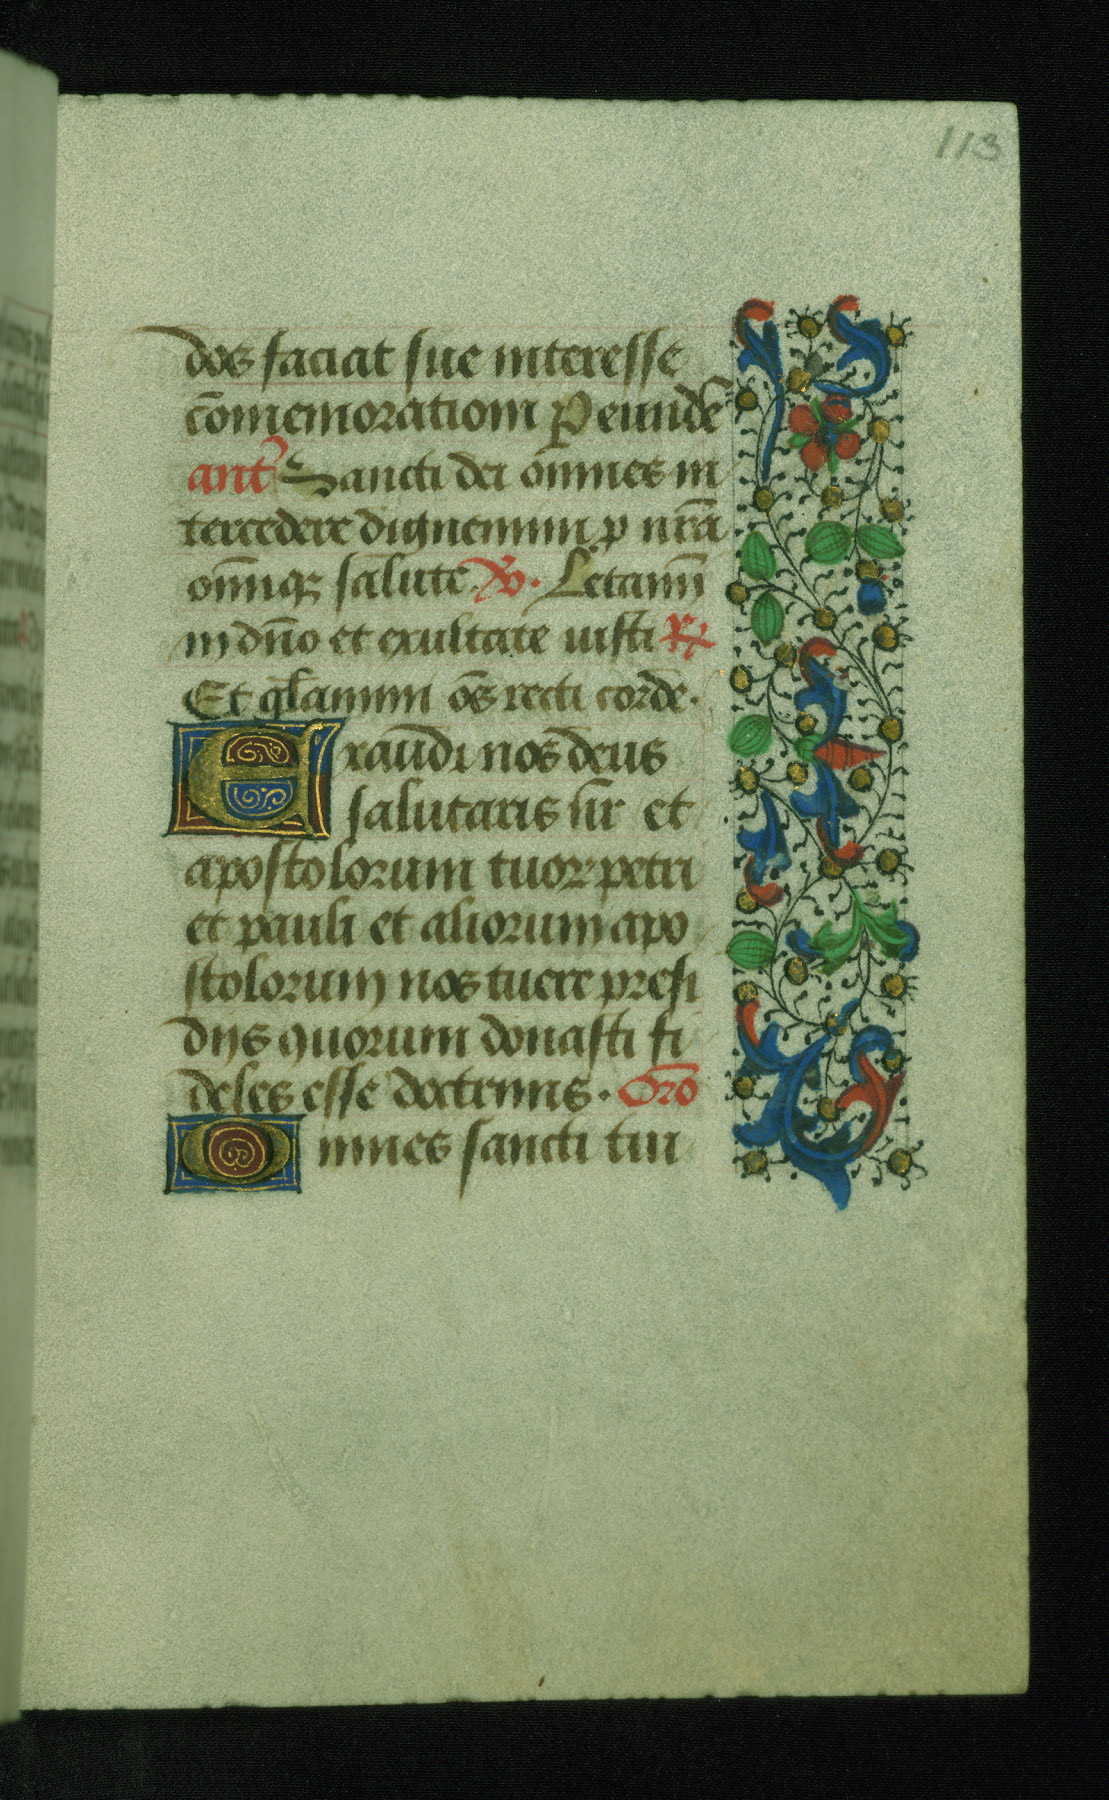 113
dos faciat sue interesse
cōmemorationi P eundē
ant̄ Sancti dei om̄nes in
tercedere dignemini ꝑ nr̄a
om̄iq; salute. ℣. Letamī
in dn̄o et exultate iusti ℟
Et gl̄amini om̄s recti corde.
Exaudi nos deus
salutaris nr̄ et
apostolorum tuoꝝ petri
et pauli et aliorum apo
stolorum nos tuere presi
dijs quorum donasti fi
deles esse doctrinis. Or̄o
Omnes sancti tui